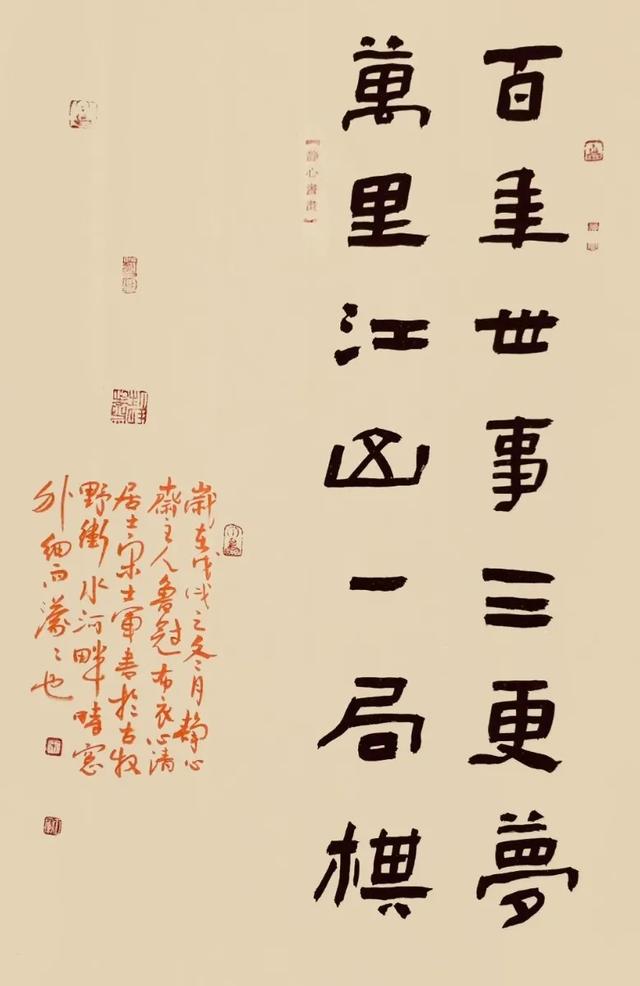 百年世事三更夢
萬里江山一局棋
【靜心書畫】
歲在戊戌之冬月静心
齋主人魯冠布衣心清
居士宋士軍書於古牧
野衛水河畔時窓
外細雨濛〻也